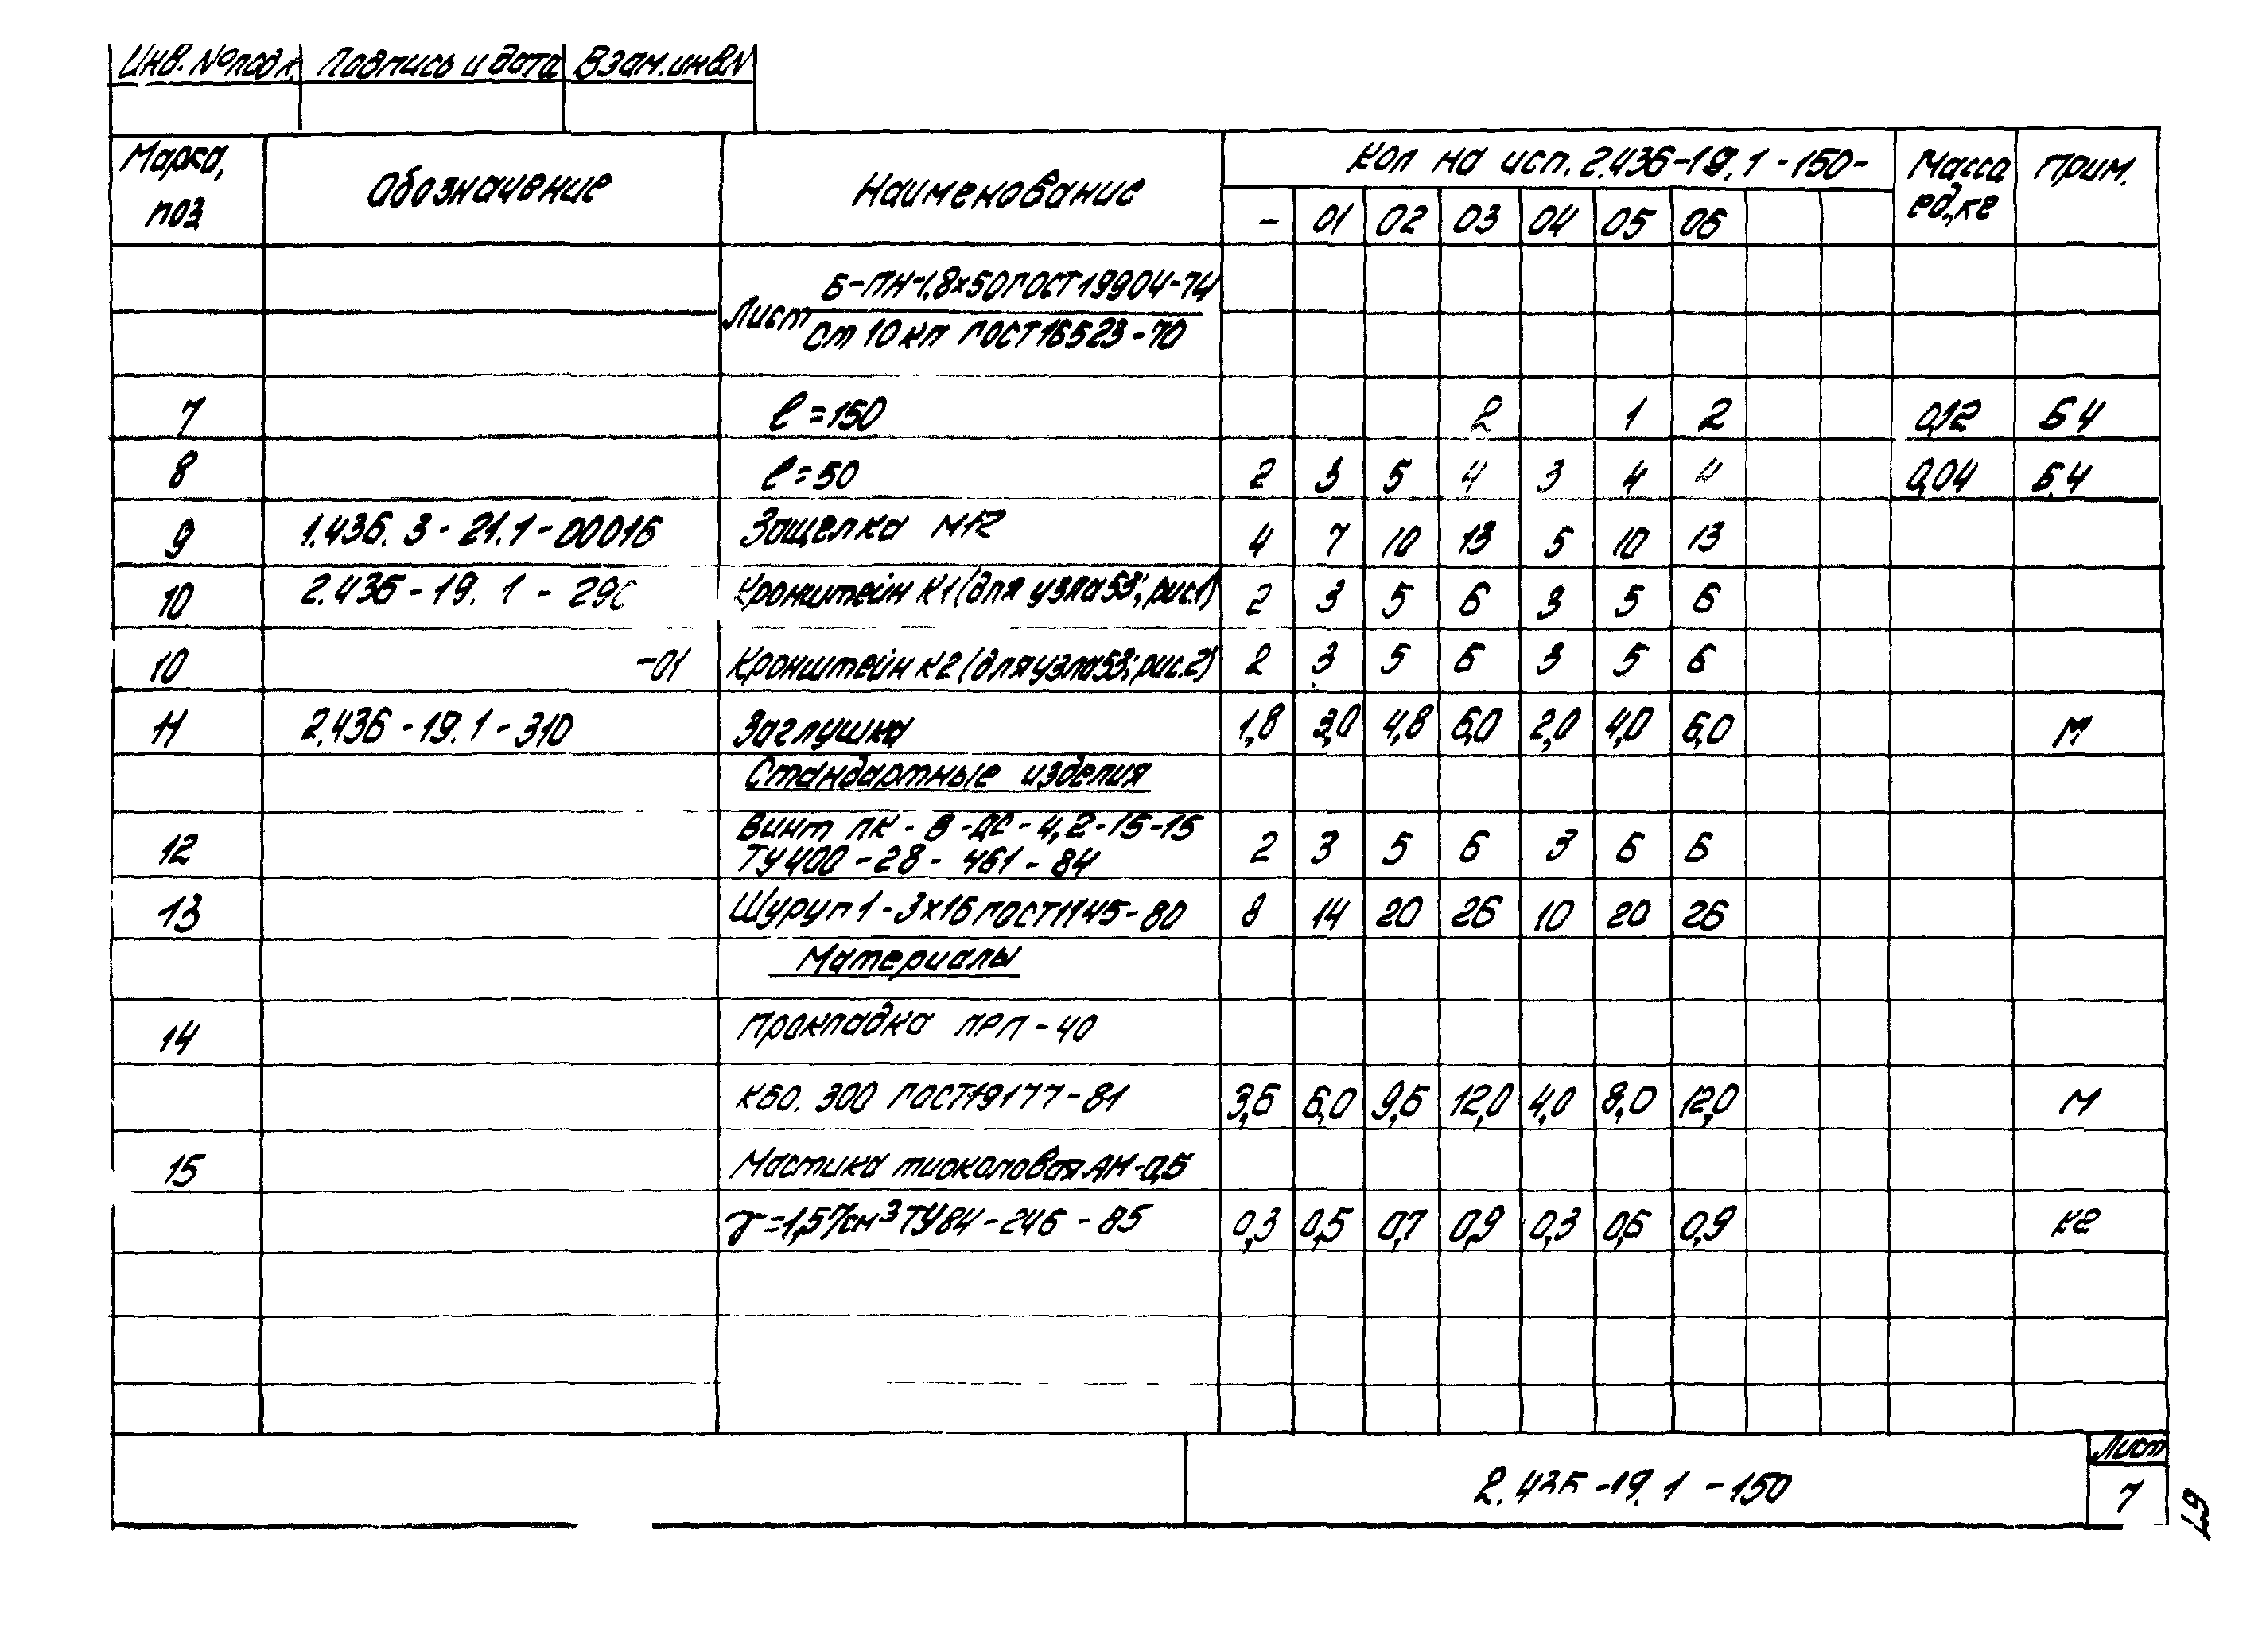 Инв. № подл. Подпись и дата Взам. инв. N
Марка, поз Обозначение Наименование Кол на исп. 2.436-19.1-150- Масса ед, кг Прим.
- 01 02 03 04 05 06
Лист Б-ПН-1,8х50 ГОСТ 19904-74
Ст 10 кп ГОСТ 16523-70
7 ℓ=150 2 1 2 0,12 БЧ
8 ℓ=50 2 3 5 4 3 4 4 0,04 БЧ
9 1.436.3-21.1-00016 Защелка М12 4 7 10 13 5 10 13
10 2.436-19.1-290 Кронштейн К1 (для узла 53; рис.1) 2 3 5 6 3 5 6
10 -01 Кронштейн К2 (для узла 53; рис.2) 2 3 5 6 3 5 6
11 2.436-19.1-310 Заглушка 1,8 3,0 4,8 6,0 2,0 4,0 6,0 М
Стандартные изделия
12 Винт ПК-В-ДС-4,2-15-15
ТУ 400-28-461-84 2 3 5 6 3 6 6
13 Шуруп 1-3х16 ГОСТ 1145-80 8 14 20 26 10 20 26
Материалы
14 Прокладка ПРП-40
К60.300 ГОСТ 19177-81 3,6 6,0 9,6 12,0 4,0 8,0 12,0 М
15 Мастика тиоколовая АМ-0,5
γ=1,5 г/см³ ТУ 84-246-85 0,3 0,5 0,7 0,9 0,3 0,6 0,9 кг
2.436-19.1-150
Лист
7
67